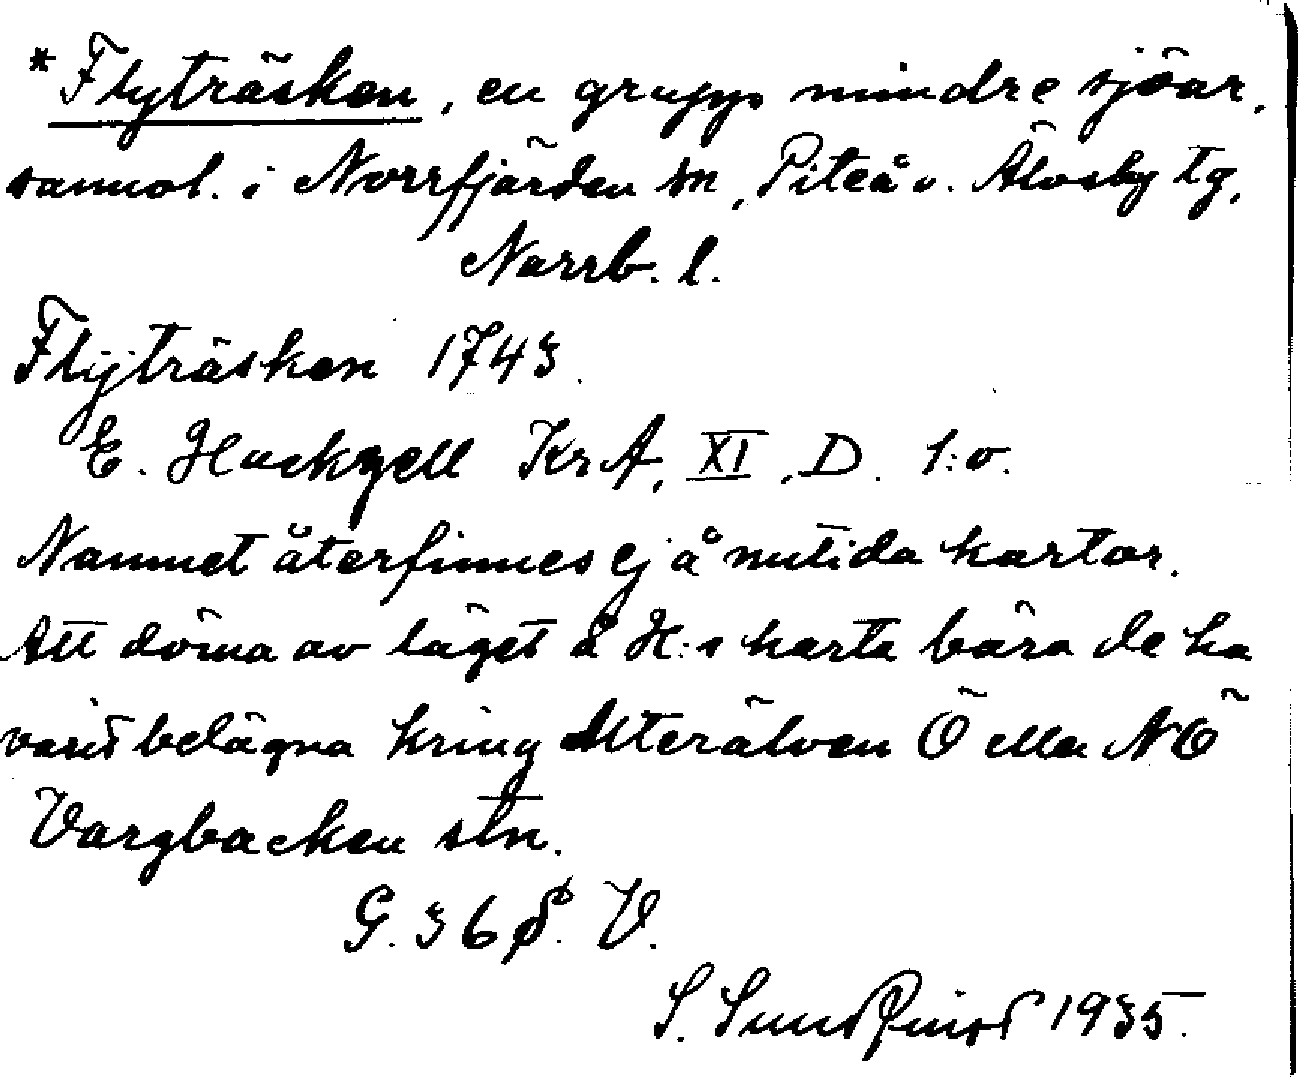 *Flyträsken, en grupp mindre sjöar,
sannol. i Norrfjärden sn, Piteå o. Älvsby tg,
Norrb. l.
Flyträsken 1743.
E. Hackzell Kr A, XI, D. 1:o.
Namnet återfinnes ej å nutida kartor.
Att döma av läget å H:s karta böra de ha
varit belägna kring Alterälven Ö eller NÖ
Vargbacken stn.
G. 36 V.
S. Sundquist 1935.